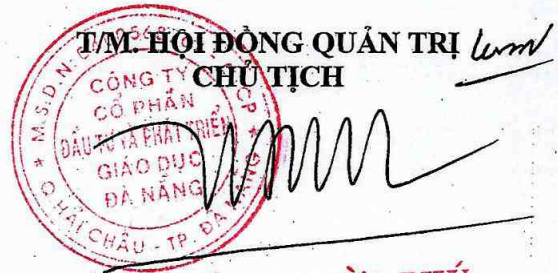 T/M. HỘI ĐỒNG QUẢN TRỊ
CHỦ TỊCH
CÔNG TY
CỔ PHẦN
ĐẦU TƯ VÀ PHÁT TRIỂN
GIÁO DỤC
ĐÀ NẴNG
M.S.D.N:
Q. HẢI CHÂU - TP. ĐÀ